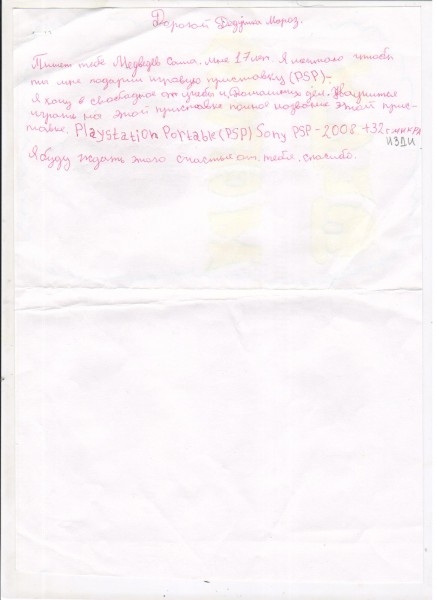 Дорогой Дедушка Мороз.
Пишет тебе Медведев Саша. мне 17 лет. Я мечтаю чтобы
ты мне подарил игравую приставку (PSP)-
Я хочу в свабодное от учебы и домашних дел.
играть на этой приставке полное название этой прис-
тавке. Playstation Portable (PSP) Sony PSP-2008 +32
Я буду ждать этого счастье от тебя, спасибо.